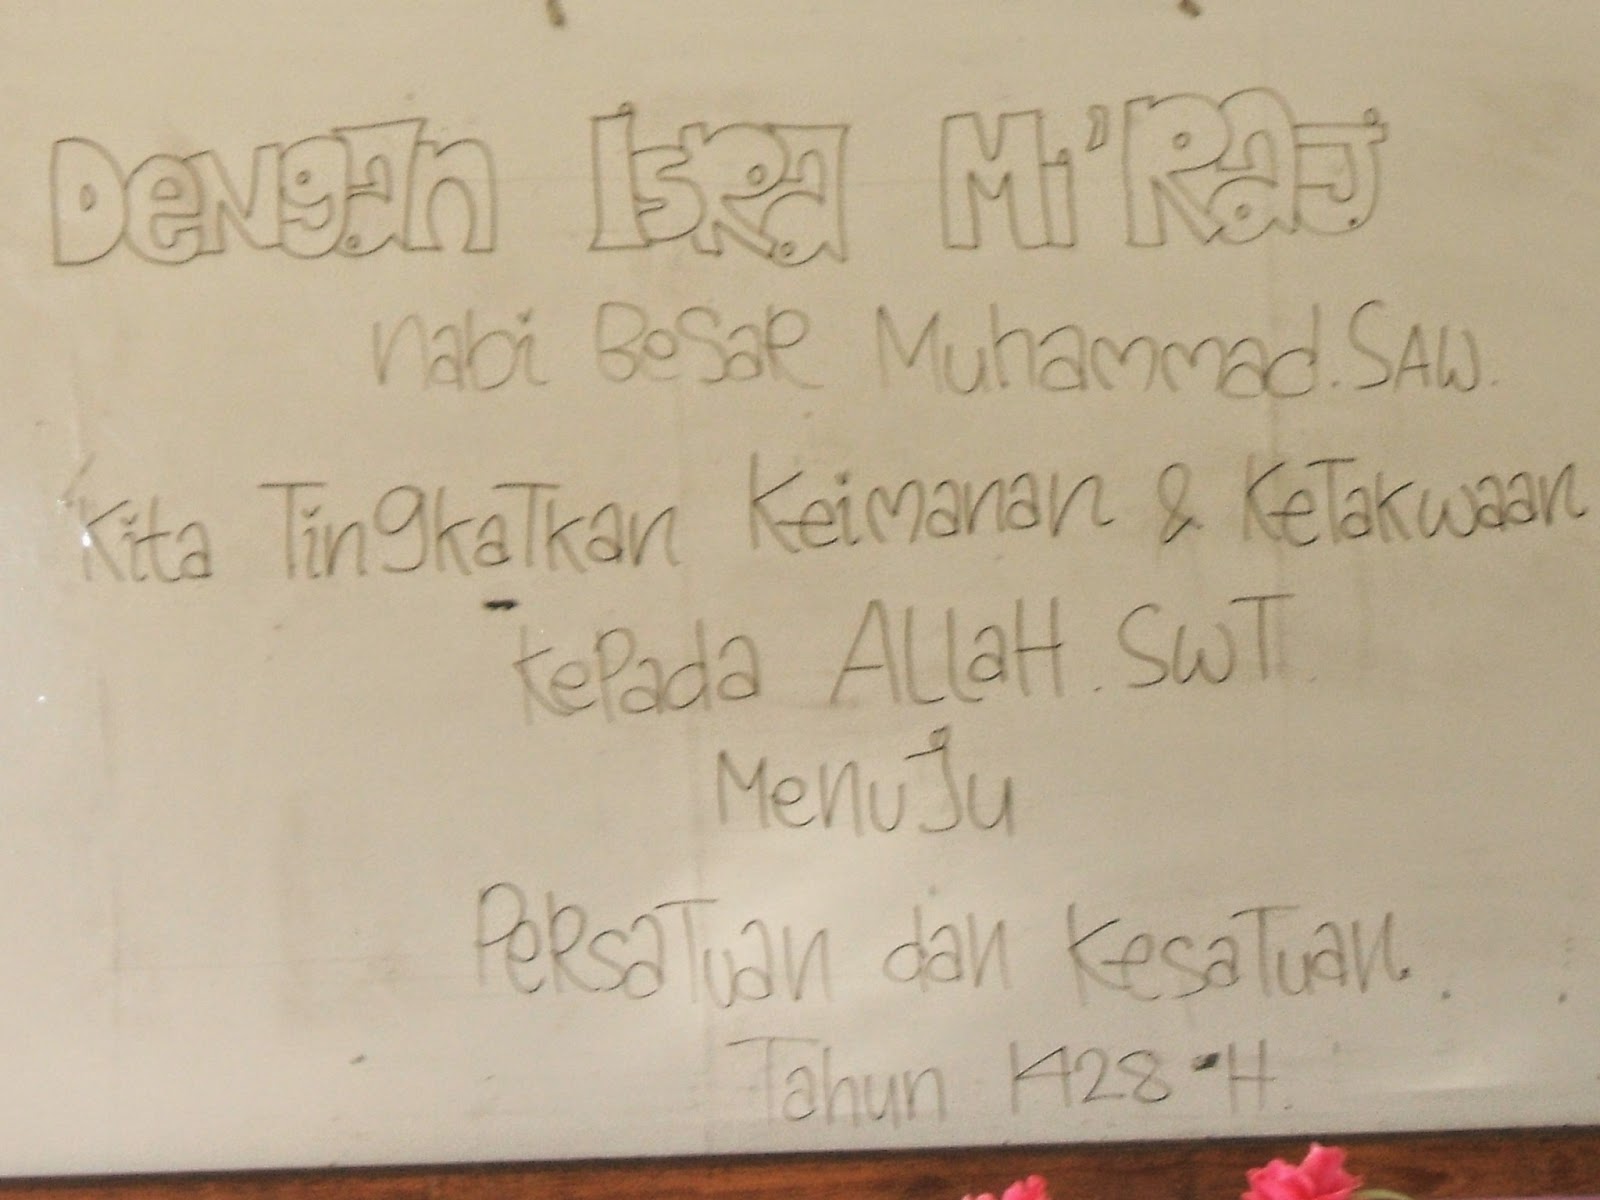 Dengan Isra Mi'raj
nabi Besar Muhammad.SAW.
Kita Tingkatkan Keimanan & Ketakwaan
kepada ALLAH. SWT.
Menuju
Persatuan dan Kesatuan.
Tahun 1428-H.